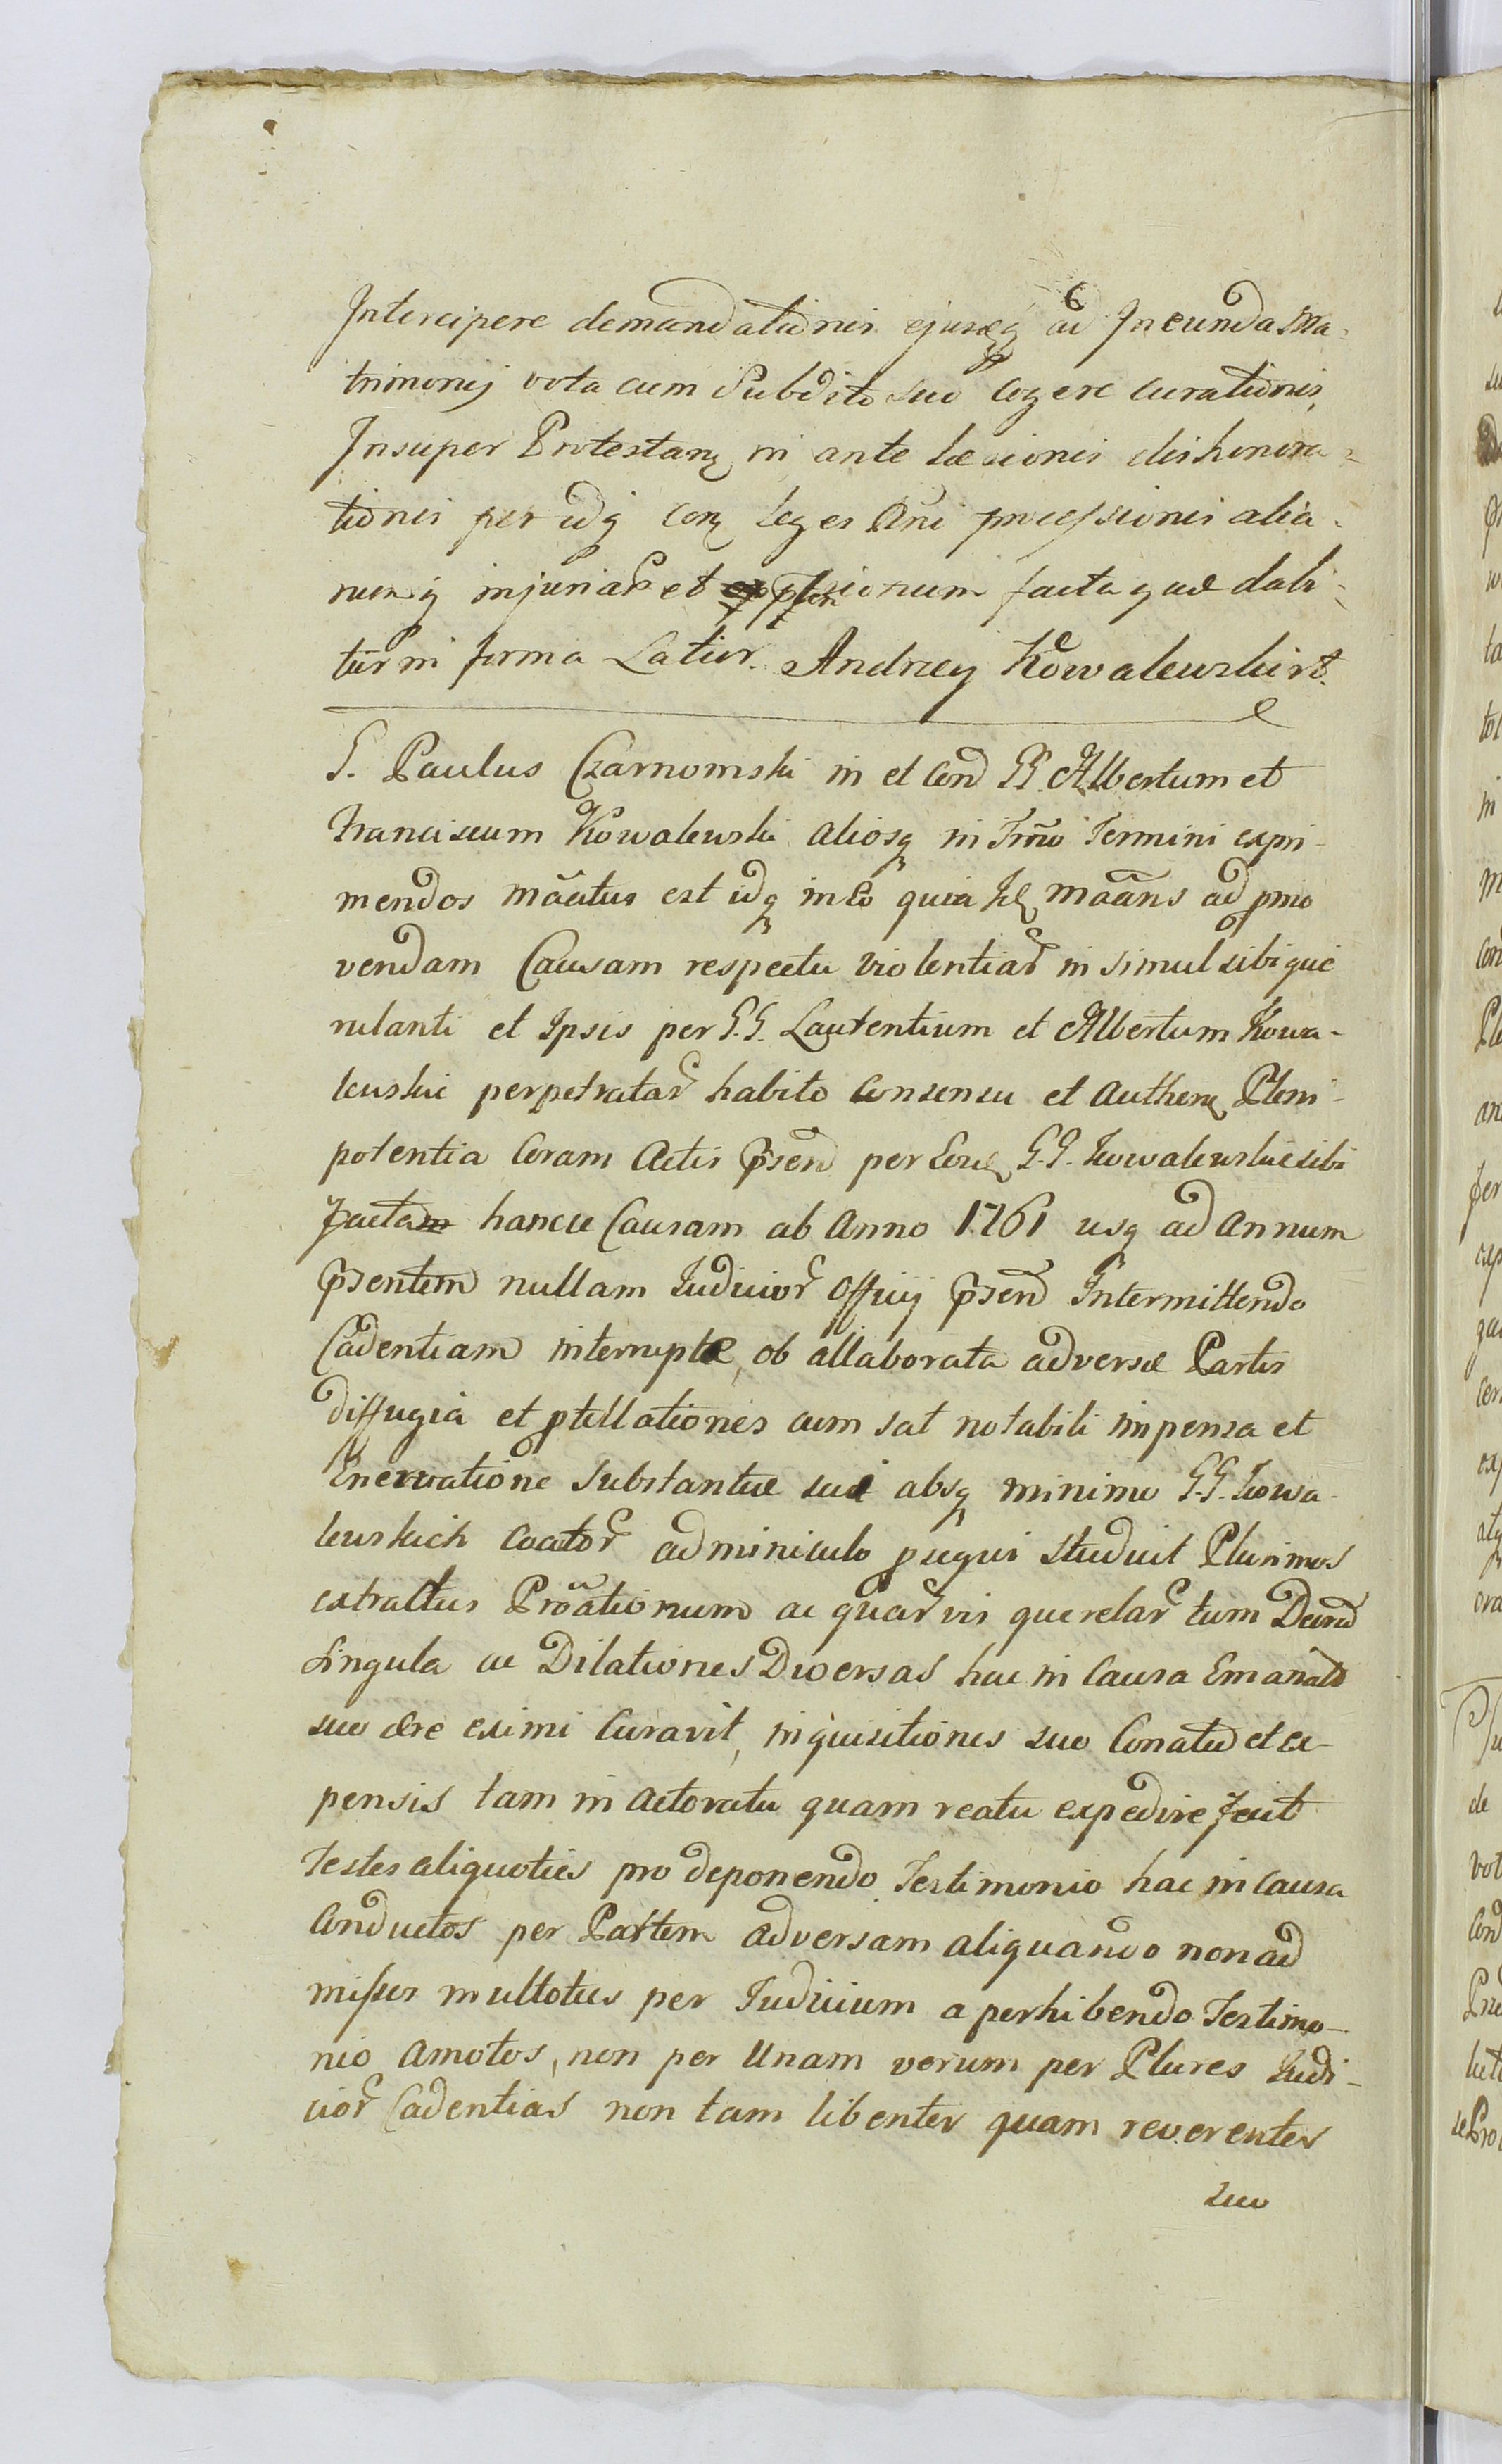 Intercipere demandationis ejusq ad Ineunda Ma-
trimonij vota cum Subdito suo cogere curationis,
Insuper Protestans in ante læsionis dishonora-
tionis per idq leges Ani processionis alia-
rumq injuriar et pssionum facta quæ dabi-
tur in forma Latior. Andrzey Kowalewski rt.
G. Paulus Czarnomski in et Con GG. Albertum et
Franciscum Kowalewski aliosq in Trmo Termini expri-
mendos mãtus est idq in Eo quia Id mãans ad pmo
vendam Causam respectu violentiar in simul sibi que
rulanti et Ipsis per G.G. Laurentium et Albertum Kowa-
lewskie perpetratar habito Consensu et Authen Pleni-
potentia Coram Actis Psen per Eosd G.G. Kowalewskie sibi
facta hancce Causam ab Anno 1761 usq ad Annum
Psentem nullam Iudicior Officij Psen Intermittendo
Cadentiam interruptæ, ob allaborata adversæ Partis
diffugia et ptellationes cum sat notabili impensa et
Enervatione Substantiæ suæ absq minimo G.G. Kowa-
lewskich Coactor adminiculo psequi studuit Plurimos
extractus Proationum ac quarvis querelar tum Decret
Singula ac Dilationes Diversas hac in Causa Emanat
suo ære eximi Curavit, inquisitiones suo Conatu et ex-
pensis tam in Actoratu quam reatu expedire fecit
Testes aliquoties pro deponendo Testimonio hac in Causa
Conductos per Partem adversam aliquando non ad
missos multoties per Iudicium a perhibendo Testimo-
nio Amotos, non per Unam verum per Plures Iudi-
cior Cadentias non tam libenter quam reverenter
suo